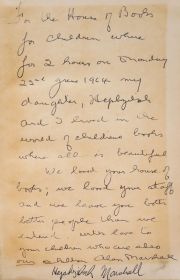 For the House of Books
for children where
for 2 hours on Monday
22nd June 1964 my
daughter, Hephzibah
and I lived in the
world of childrens books
where all is beautiful
We loved your house of
books; we loved your staff
and we leave your
better people than we
entered. with love to
your children who are also
our children Alan Marshall
Hephzibah Marshall